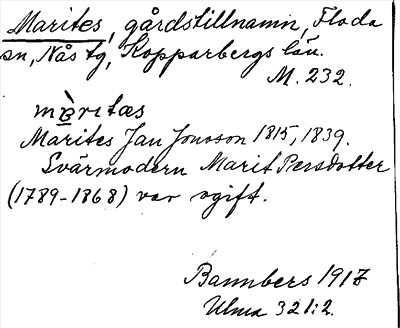 Marites, gårdstillnamn, Floda
sn, Nås tg, Kopparbergs län.
M. 232.
mèritæs
Marites Jan Jonsson 1815, 1839.
Svärmodern Marit Persdotter
(1789-1868) var ogift.
Bannbers 1917
Ulma 321:2.